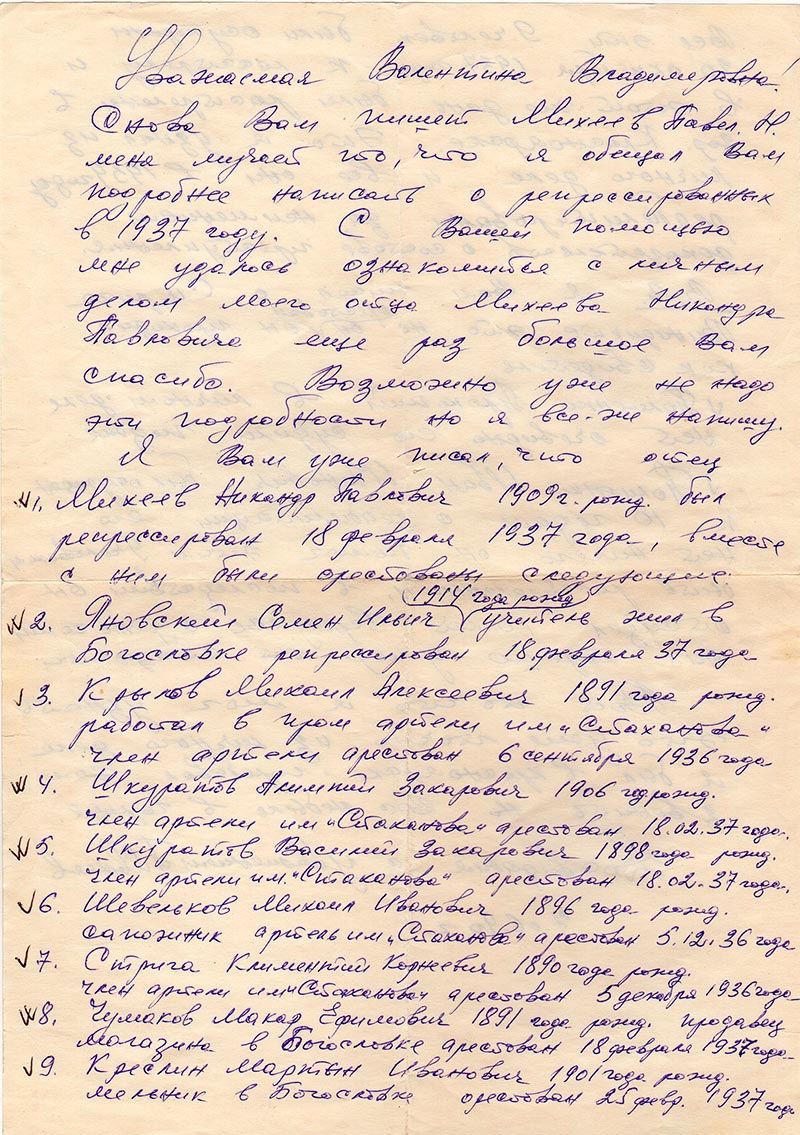 Уважаемая Валентина Владимировна!
Снова Вам пишет Михеев Павел. Н.
меня мучает то, что я обещал Вам
подробнее написать о репрессированных
в 1937 году. С Вашей помощью
мне удалось ознакомится с личным
делом моего отца Михеева Никандра
Павловича еще раз большое Вам
спасибо. Возможно уже не надо
эти подробности но я все-же напишу.
Я Вам уже писал, что отец
1. Михеев Никандр Павлович 1909 г. рожд. был
репрессирован 18 февраля 1937 года, вместе
с ним были арестованы следующие:
1914 года рожд
2. Яновский Семен Ильич учитель жил в
Богословке репрессирован 18 февраля 37 года
3. Крылов Михаил Алексеевич 1891 года рожд.
работал в пром артели им „Стаханова"
член артели арестован 6 сентября 1936 года
4. Шкуратов Акимпий Захарович 1906 год рожд.
член артели им „Стаханова" арестован 18.02.37 года.
5. Шкуратов Василий Захарович 1898 года рожд.
член артели им. „Стаханова" арестован 18.02.37 года.
6. Шевельков Михаил Иванович 1896 года рожд.
сапожник артель им „Стаханова" арестован 5.12.36 года
7. Стрига Климентий Корнеевич 1890 года рожд.
член артели им „Стаханова" арестован 5 декабря 1936 года
8. Чумаков Макар Ефимович 1891 года рожд. продавец
магазина в Богословке арестован 18 февраля 1937 года
9. Креслин Мартын Иванович 1901 года рожд.
мельник в Богословке арестован 25 февр. 1937 года